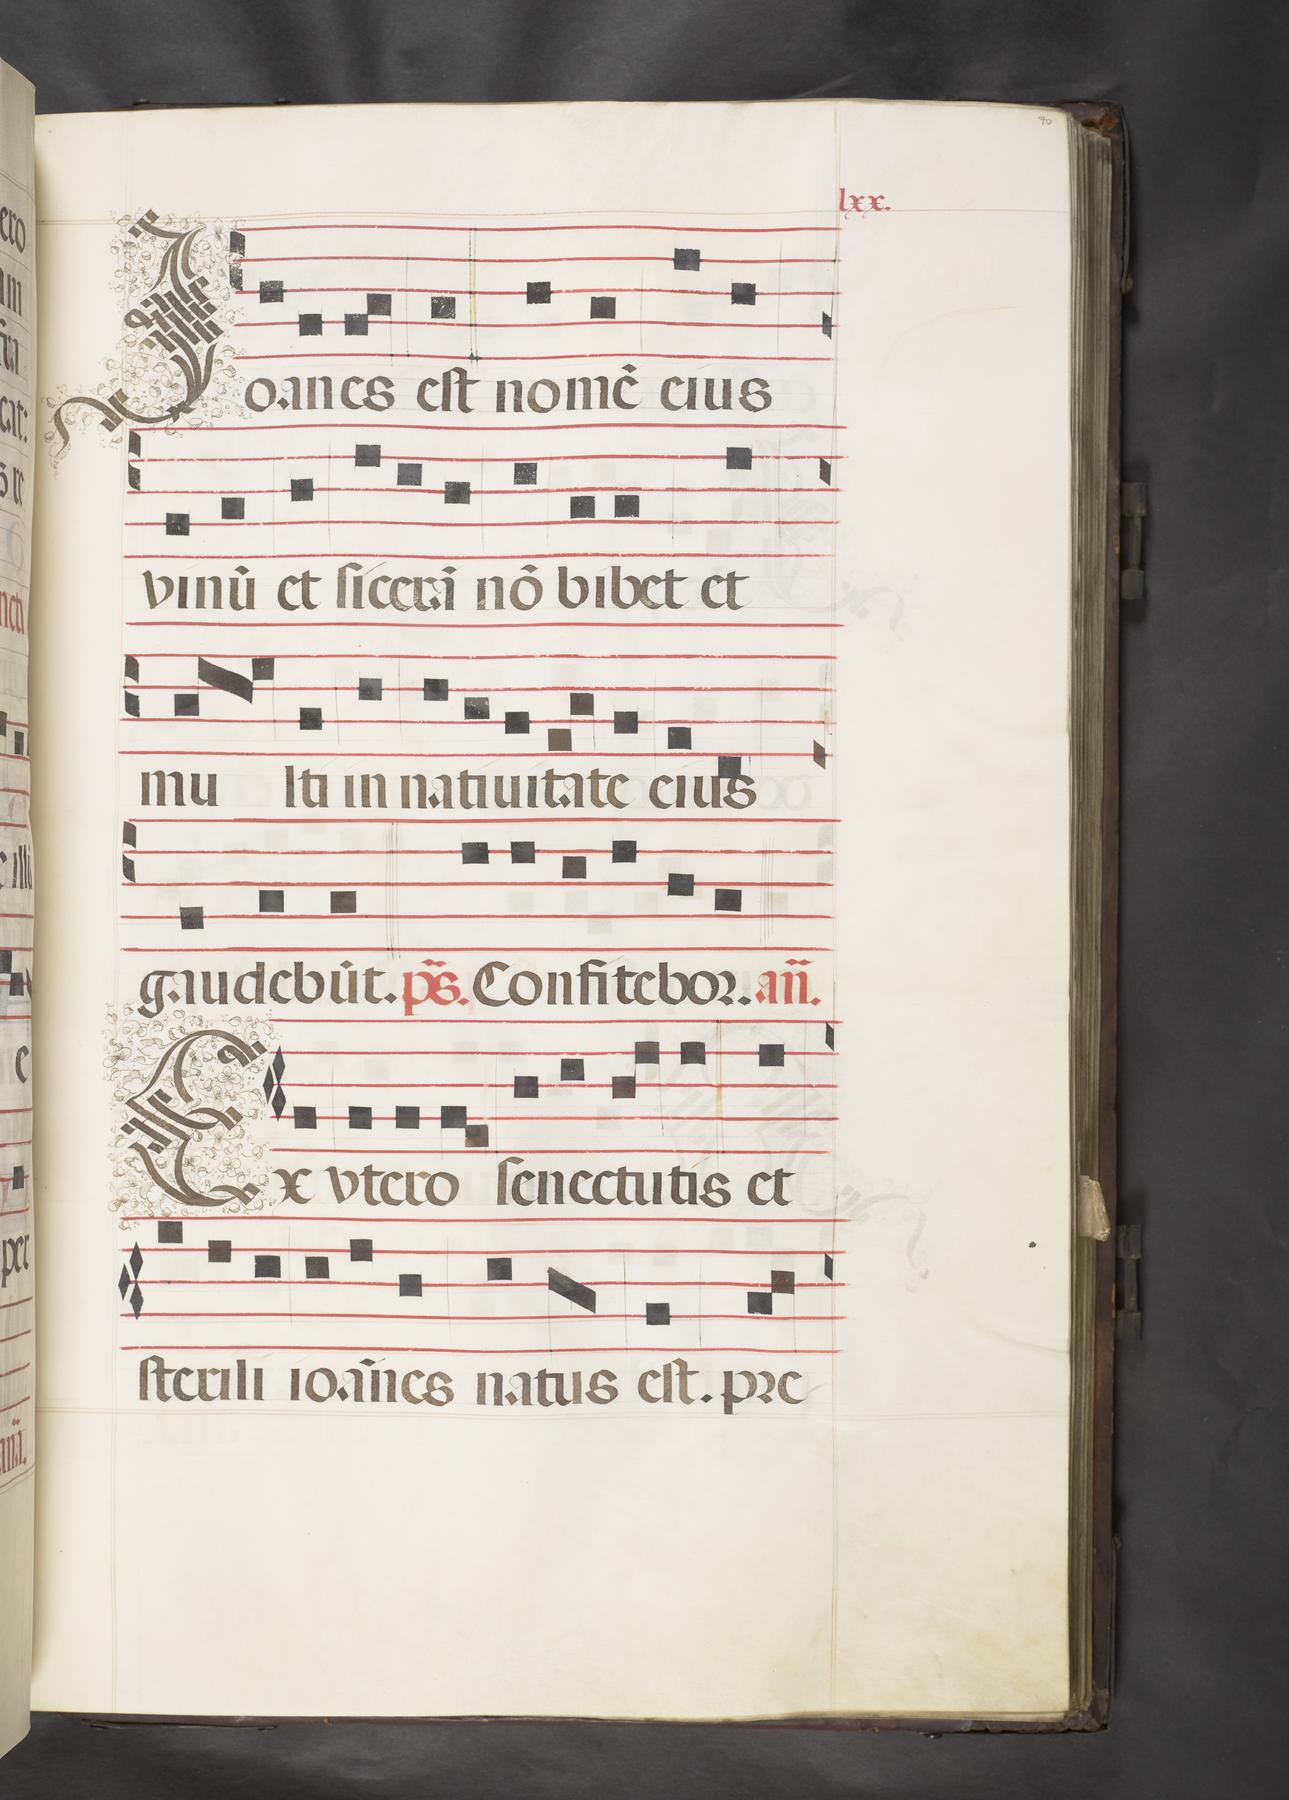 70
lxx.
Joanes est nomē eius
vinū et sicerā nō bibet et
mu lti in natiuitate eius
gaudebūt. ps̄. Confitebor. añ.
Ex vtero senectutis et
sterili ioāñes natus est. pre